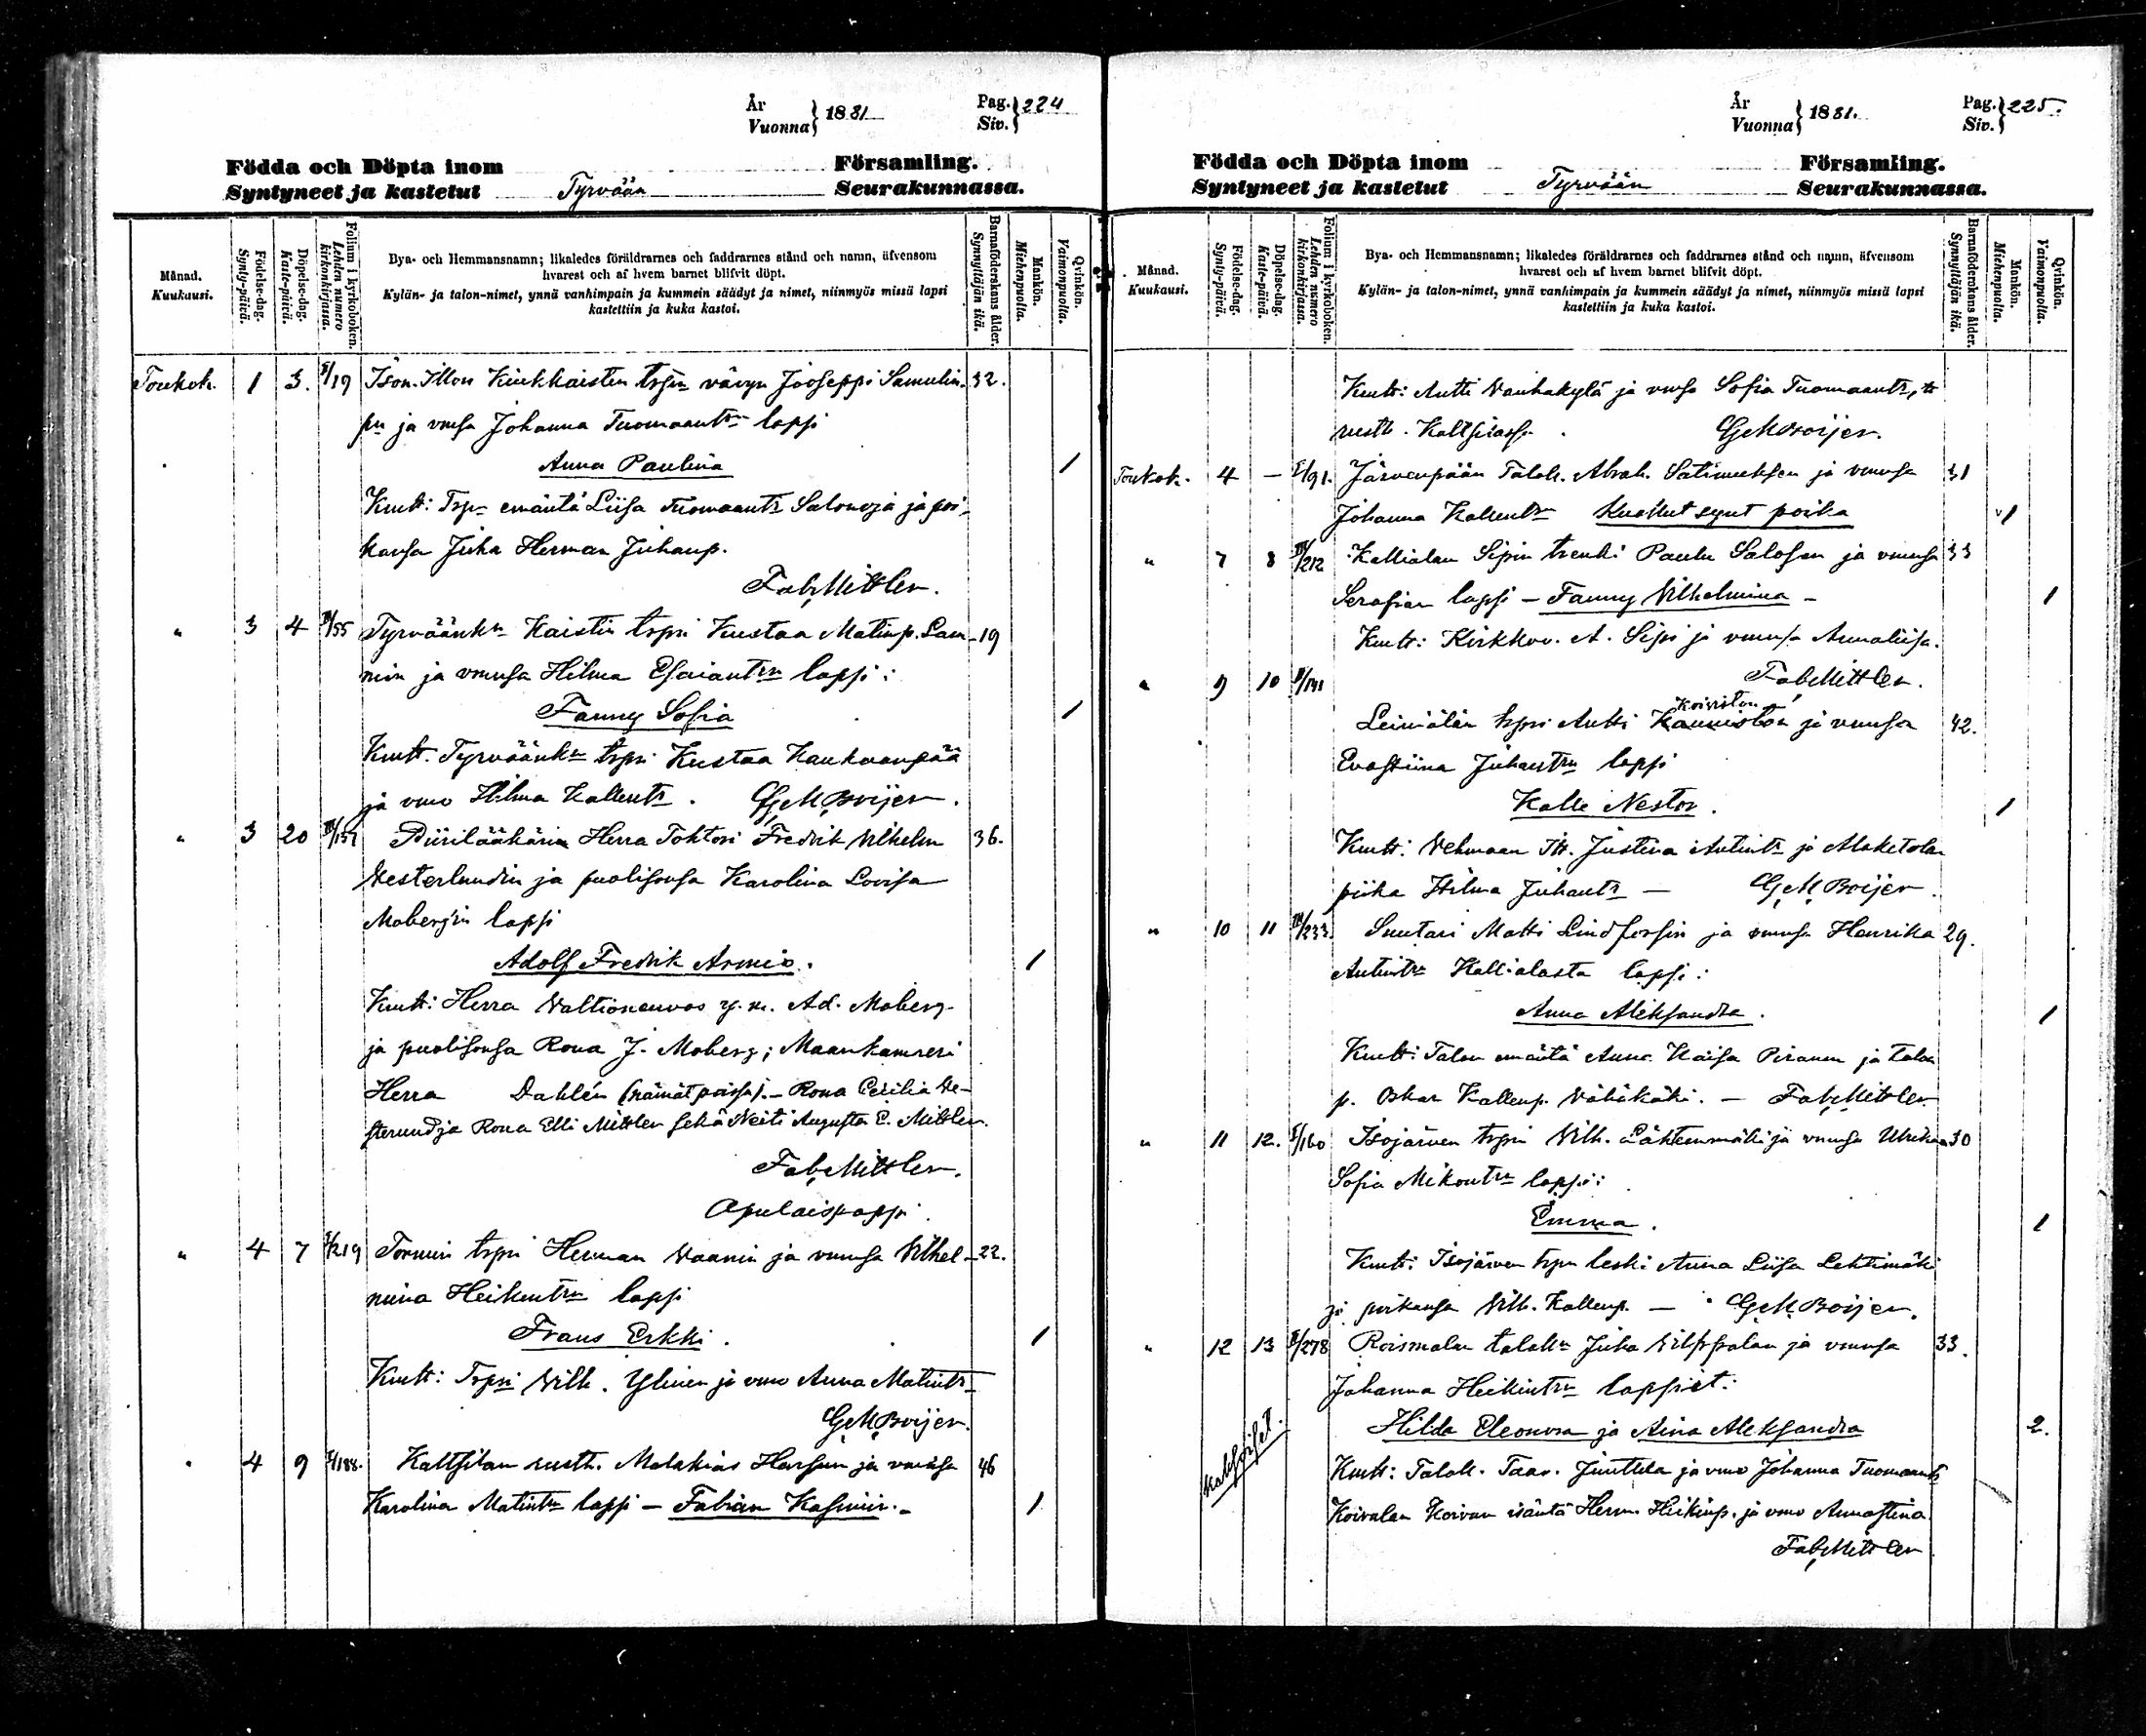 År
Vuonna } 1881
Pag.
Siv. } 224
Födda och Döpta inom Församling.
Syntyneet ja kastetut Tyrvään Seurakunnassa.
Månad.
Kuukausi.
Födelse-dag.
Synty-päivä.
Döpelse-dag.
Kaste-päivä.
Folium i kyrkoboken.
Lehden numero kirkonkirjassa.
Bya- och Hemmansnamn; likaledes föräldrarnes och faddrarnes stånd och namn, äfvensom
hvarest och af hvem barnet blifvit döpt.
Kylän- ja talon-nimet, ynnä vanhimpain ja kummein säädyt ja nimet, niinmyös missä lapsi
kastettiin ja kuka kastoi.
Barnaföderskans ålder.
Synnyttäjän ikä.
Mankön.
Miehenpuolta.
Qvinkön.
Vaimonpuolta.
Toukok. 1 3. /19 Ison-Illon Kiukkaisten vävyn Jooseppi Samulin- 32.
pn ja vmsa Johanna Tuomaantrn lapsi
Anna Paulina 1
Kmtt: emäntä Liisa Tuomaantr Salonoja ja poi-
kansa Juha Herman Juhanp.
Fab. Mittler.
" 3 4 /55 Tyrväänkn Kaistin trpri Kustaa Matinp. Lam- 19
min ja vmnsa Hilma Esaiantrn lapsi:
Fanny Sofia 1
Kmtt. Tyrväänkn trpri Kustaa Kaukvanpää
ja vmo Hilma Kallentr. G. M. Boijer.
" 3 20 /151 Piirilääkärin Herra Tohtori Fredrik Vilhelm 36.
Westerlundin ja puolisonsa Karolina Lovisa
Moberg'in lapsi
Adolf Fredrik Armio. 1
Kmtt: Herra Valtioneuvos y. m. Ad. Moberg
ja puolisonsa Roua J. Moberg; Maankamreri
Herra Dahlén (nämät poissa). - Roua Cecilia We-
sterlund ja Roua Elli Mittler sekä Neiti Augusta E. Mittler.
Fab. Mittler.
Apulaispappi.
" 4 7 /219 Tormin trpri Herman Vaanin ja vmnsa Vilhel- 22.
mina Heikintrn lapsi
Frans Erkki. 1
Kmtt: Trpri Vilh. Ylinen ja vmo Anna Matintr
G. M. Boijer.
" 4 9 /188. Kaltsilan rustt. Malakias Hansun ja vmnsa 46
Karolina Matintrn lapsi - Fabian Kasimir. - 1
År
Vuonna } 1881.
Pag.
Siv. } 225.
Födda och Döpta inom Församling.
Syntyneet ja kastetut Tyrvään Seurakunnassa.
Månad.
Kuukausi.
Födelse-dag.
Synty-päivä.
Döpelse-dag.
Kaste-päivä.
Folium i kyrkoboken.
Lehden numero kirkonkirjassa.
Bya- och Hemmansnamn; likaledes föräldrarnes och faddrarnes stånd och namn, äfvensom
hvarest och af hvem barnet blifvit döpt.
Kylän- ja talon-nimet, ynnä vanhimpain ja kummein säädyt ja nimet, niinmyös missä lapsi
kastettiin ja kuka kastoi.
Barnaföderskans ålder.
Synnyttäjän ikä.
Mankön.
Miehenpuolta.
Qvinkön.
Vaimonpuolta.
Kmtt: Antti Vanhakylä ja vmsa Sofia Tuomaantr,
rustt. Kaltsilassa. G. M. Boijer.
Toukok. 4 - /91. Järvenpään Taloll. Abrah. Satimuksen ja vmnsa 31
Johanna Kallentrn Kuollut synt poika 1
" 7 8 /212 Kallialan Sipin trenki Paulu Salosen ja vmnsa 33
Serafian lapsi - Fanny Vilhelmina - 1
Kmtt: Kirkkov. A. Sipi ja vmnsa Annaliisa.
Fab. Mittler.
" 9 10 /141 Koiviston
Leiniälän trpri Antti Kanniston ja vmnsa 42.
Evastiina Juhantrn lapsi
Kalle Nestor. 1
Kmtt: Vehmaan Itt. Justina Antintr ja Alaketolan
piika Hilma Juhantr - G. M. Boijer.
" 10 11 /233 Suutari Matti Lindforsin ja vmnsa Henrika 29.
Antintrn Kallialasta lapsi:
Anna Aleksandra. 1
Kmtt: Talon emäntä Anna Kaisa Piranen ja talon
p. Oskar Kallenp. Vähikäki. - Fab. Mittler.
" 11 12. /160 Isojärven trpri Vilh. Lähteenmäki ja vmnsa Ulrika 30
Sofia Mikontrn lapsi:
Emma. 1
Kmtt: Isojärven trpn leski Anna Liisa Lehtimäki
ja poikansa Vilh. Kallenp. - G. M. Boijer.
" 12 13 /278 Roismalan talolln Juha Vilppalan ja vmnsa 33.
Johanna Heikintrn lapsiet:
kaksoiset. Hilda Eleonora ja Aina Aleksandra 2.
Kmtt: Taloll. Taav. Junttila ja vmo Johanna Tuomaantr
Koivulan Koivun isäntä Herm. Heikinp. ja vmo Annastina
Fab. Mittler